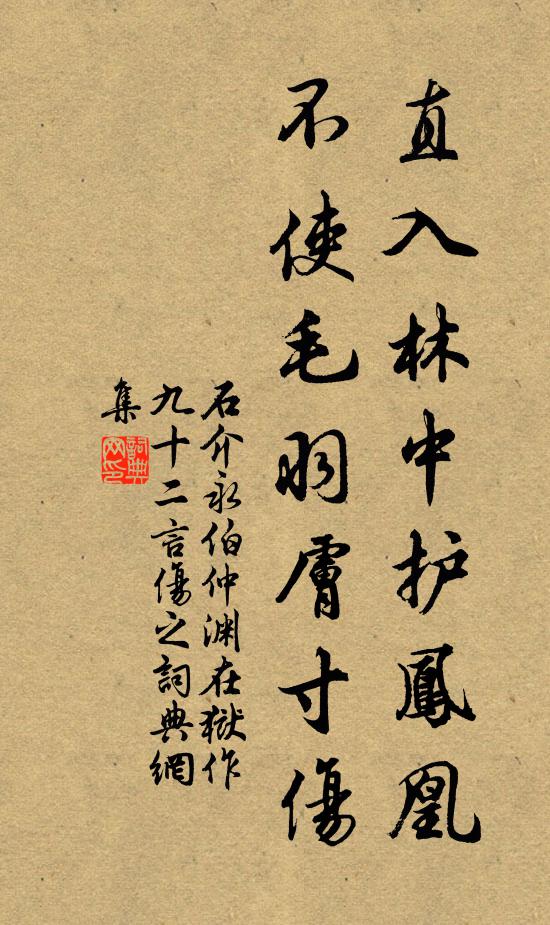 直入林中护鳳凰
不使毛羽膚寸傷
石介永伯仲渊在獄作
九十二言傷之詞典網
集
詞典
网印